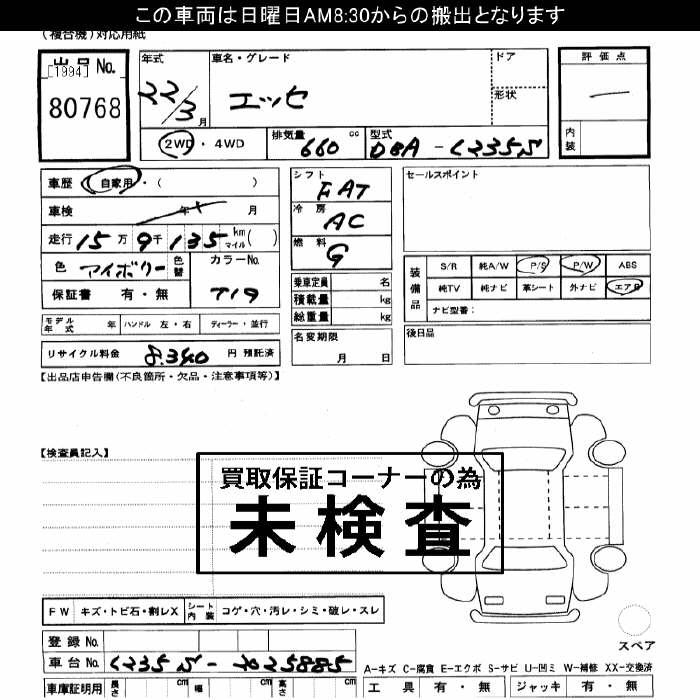 この車両は日曜日AM8:30からの搬出となります
(複合機)対応用紙
出品 No.
[1994]
80768
年式 22/3月
車名・グレード エッセ
ドア
形状
2WD・4WD
排気量 660 cc
型式 DBA-L235S
評価点
内装
車歴 自家用・( )
車検 年 月
走行 15万9千135 km マイル( )
色 アイボリー 色替
カラーNo. T19
保証書 有・無
モデル年式 年 ハンドル 左・右 ディーラー・並行
リサイクル料金 8,340 円 預託済
シフト FAT
冷房 AC
燃料 G
乗車定員 名
積載量 kg
総重量 kg
名変期限 月 日
セールスポイント
装備品
S/R 純A/W P/S P/W ABS
純TV 純ナビ 革シート 外ナビ エアB
ナビ型番:
後日品
【出品店申告欄(不良箇所・欠品・注意事項等)】
【検査員記入】
買取保証コーナーの為
未検査
FW キズ・トビ石・割レX シート内装 コゲ・穴・汚レ・シミ・破レ・スレ
登録 No.
車台 No. L235S-2025885
車庫証明用 長さ cm 幅 cm 高さ cm
スペア
A-キズ C-腐食 E-エクボ S-サビ U-凹ミ W-補修 XX-交換済
工具 有・無 ジャッキ 有・無